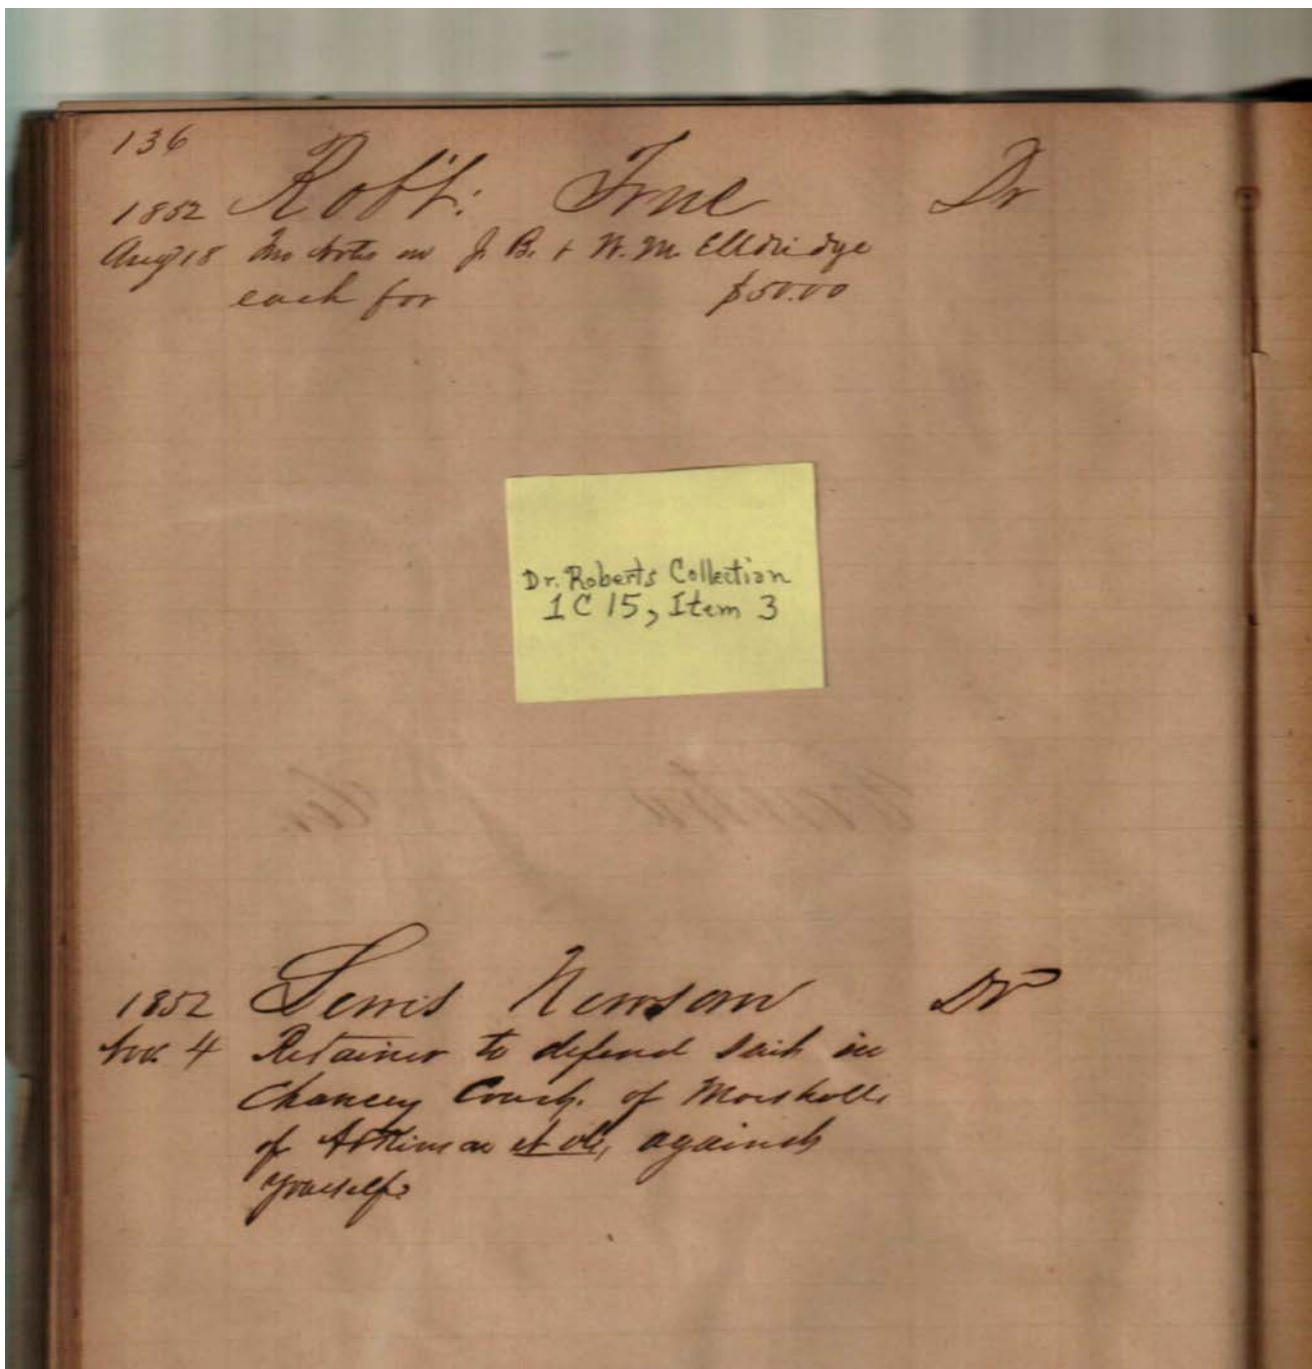 136
Rob't: True Dr
1852
Aug 18 Two Notes on J. B. & W. M. Elldridge
each for $50.00
Dr. Roberts Collection
1 C 15, Item 3
1852 Lewis Newsom Dr
Nov 4 Retainer to defend suit in
Chancery Court. of Marshall,
of Atkinson et als, against
yourself.